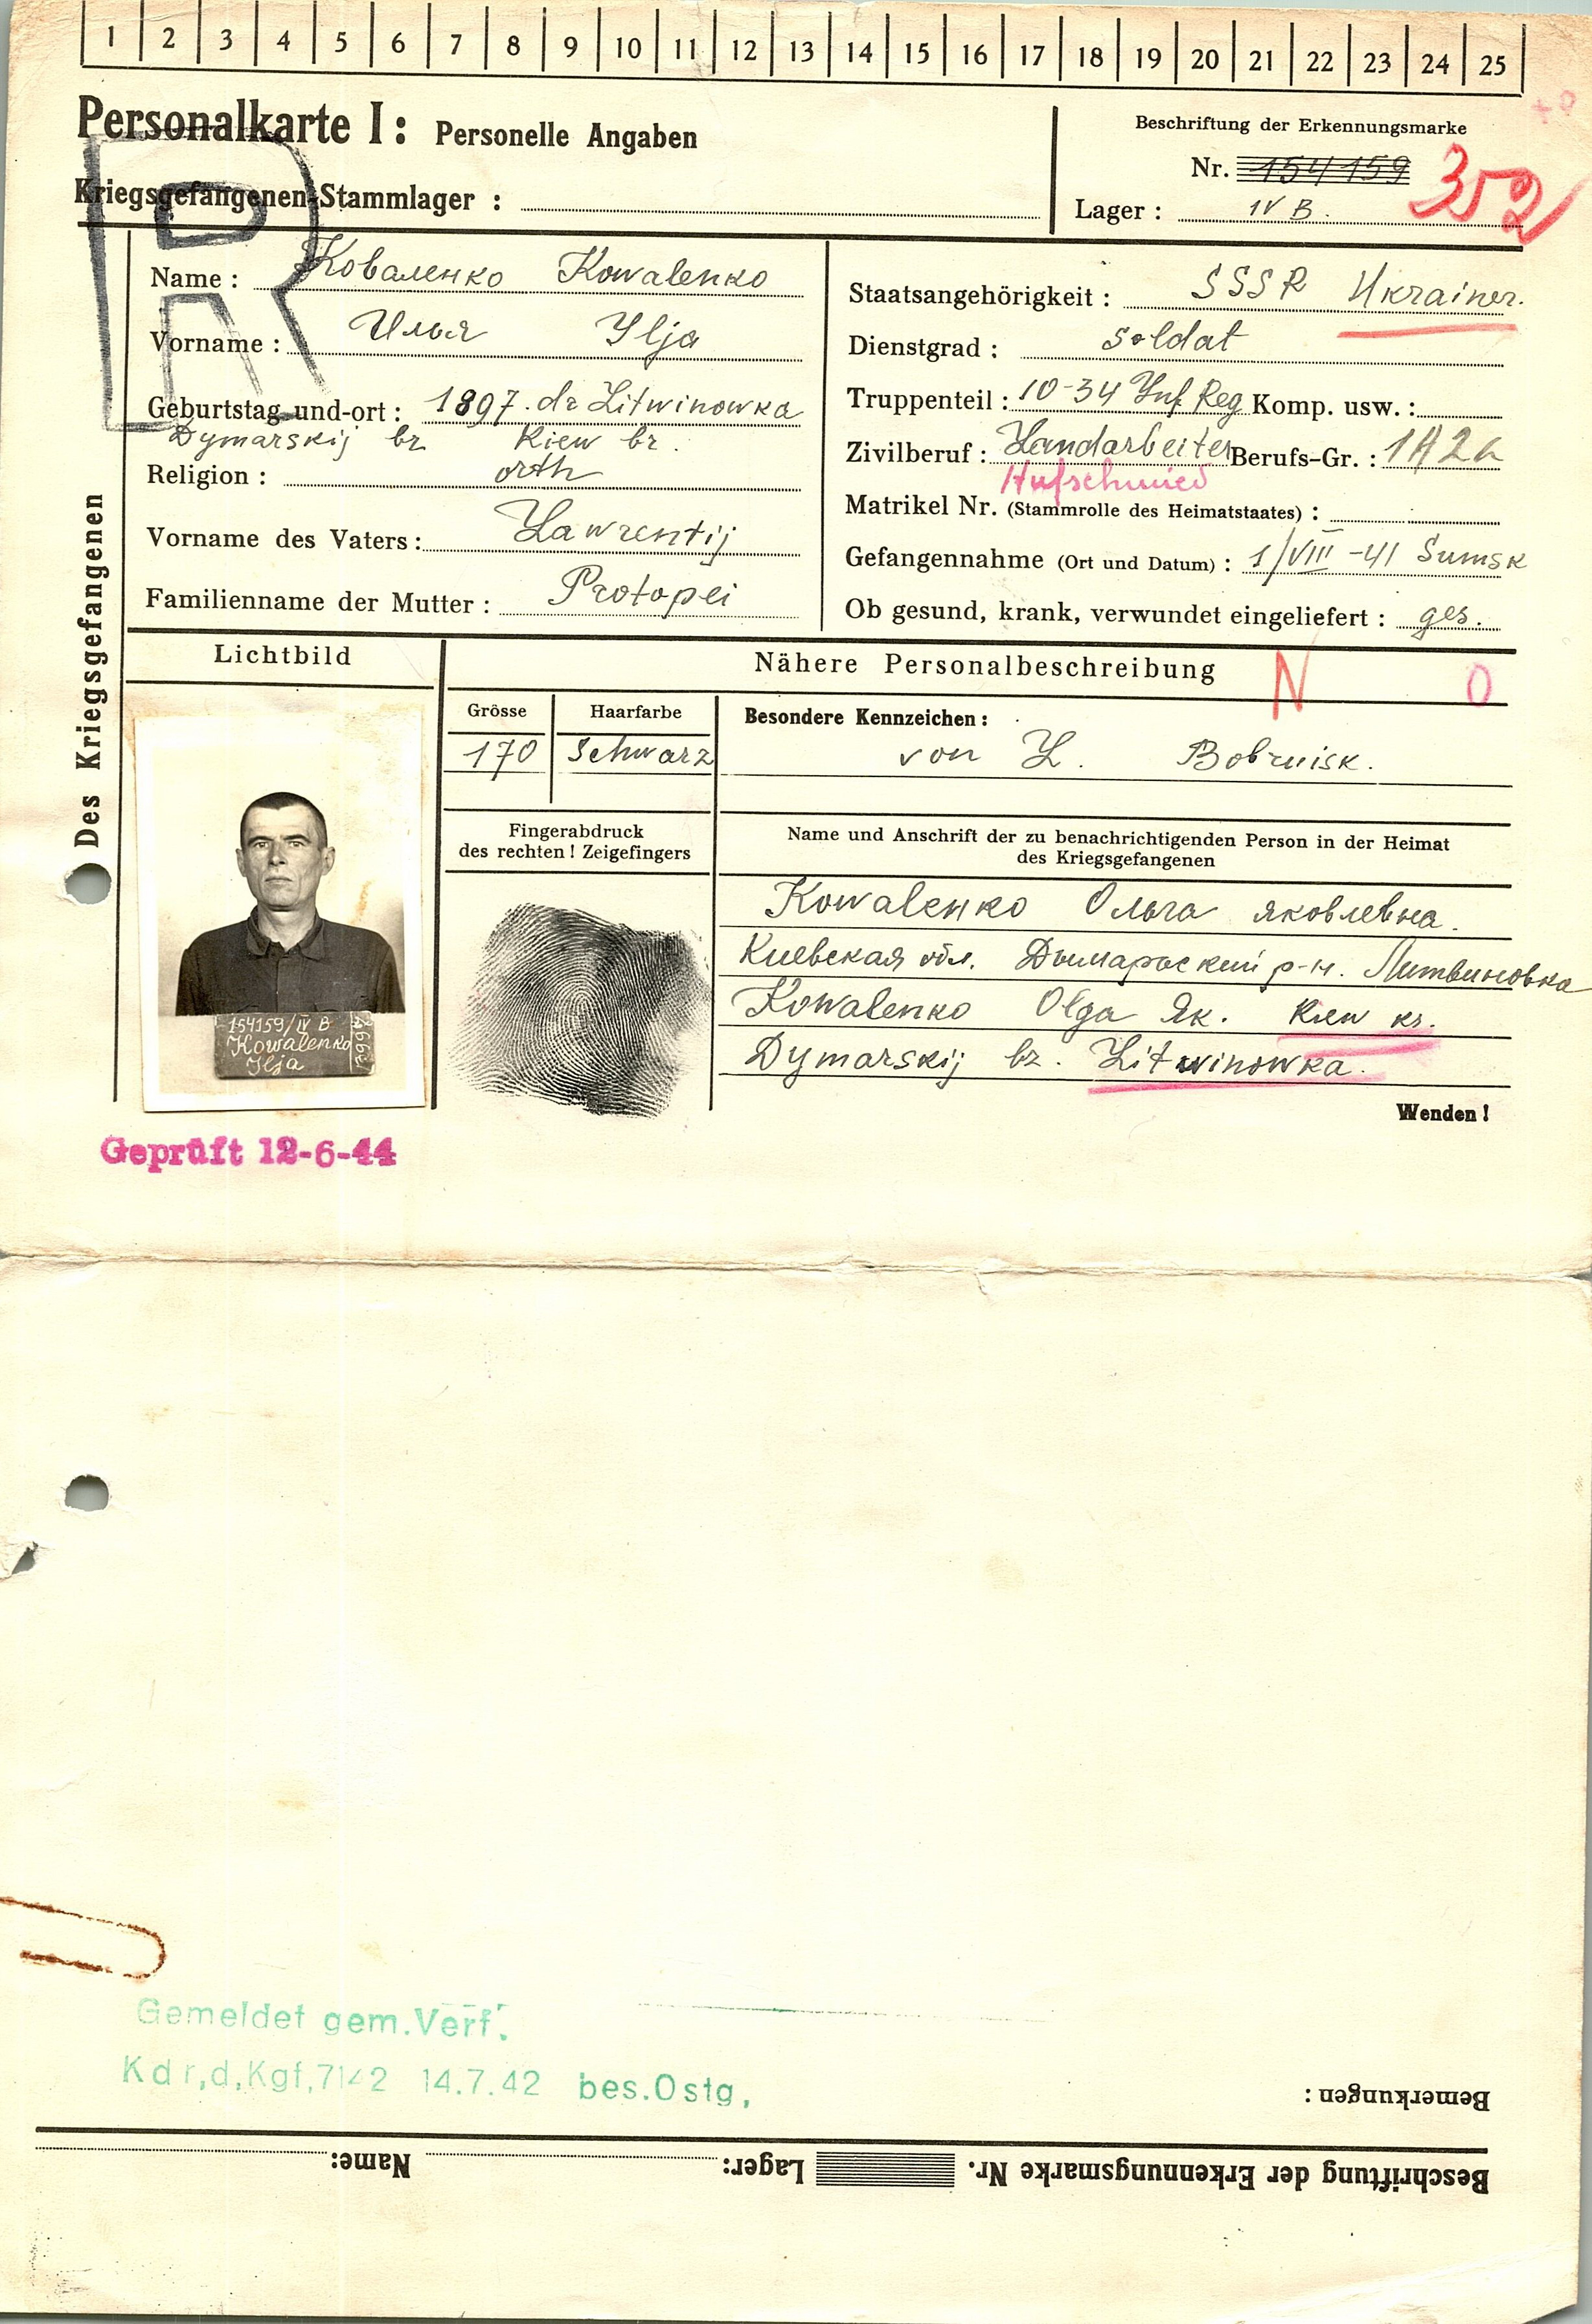 1 2 3 4 5 6 7 8 9 10 11 12 13 14 15 16 17 18 19 20 21 22 23 24 25
Personalkarte I: Personelle Angaben
Kriegsgefangenen-Stammlager :
Beschriftung der Erkennungsmarke
Nr. 154159
352
Lager : IV B.
R
Des Kriegsgefangenen
Name : Коваленко Kowalenko
Vorname : Илья Ilja
Geburtstag und-ort : 1897. dr Litwinowka
Dymarskij bz Kiew bz.
Religion : orth
Vorname des Vaters : Lawrentij
Familienname der Mutter : Protopei
Staatsangehörigkeit : SSSR Ukrainer.
Dienstgrad : Soldat
Truppenteil : 10-34 Inf Reg Komp. usw. :
Zivilberuf : Handarbeiter Berufs-Gr. : 1A2a
Hufschmied
Matrikel Nr. (Stammrolle des Heimatstaates) :
Gefangennahme (Ort und Datum) : 1/VIII-41 Sumsk
Ob gesund, krank, verwundet eingeliefert : ges.
Lichtbild
Nähere Personalbeschreibung N O
Grösse Haarfarbe
170 Schwarz
Besondere Kennzeichen :
von L. Bobruisk.
Fingerabdruck
des rechten ! Zeigefingers
Name und Anschrift der zu benachrichtigenden Person in der Heimat
des Kriegsgefangenen
Kowalenko Ольга Яковлевна.
Киевская обл. Дымарский р-н. Литвиновка
Kowalenko Olga Як. Kiew kr.
Dymarskij bz. Litwinowka.
154159/IV B
Kowalenko
Ilja
Wenden !
Geprüft 12-6-44
Gemeldet gem. Verf.
Kdr,d,Kgf,7142 14.7.42 bes.Ostg,
Bemerkungen :
Beschriftung der Erkennungsmarke Nr. Lager: Name: